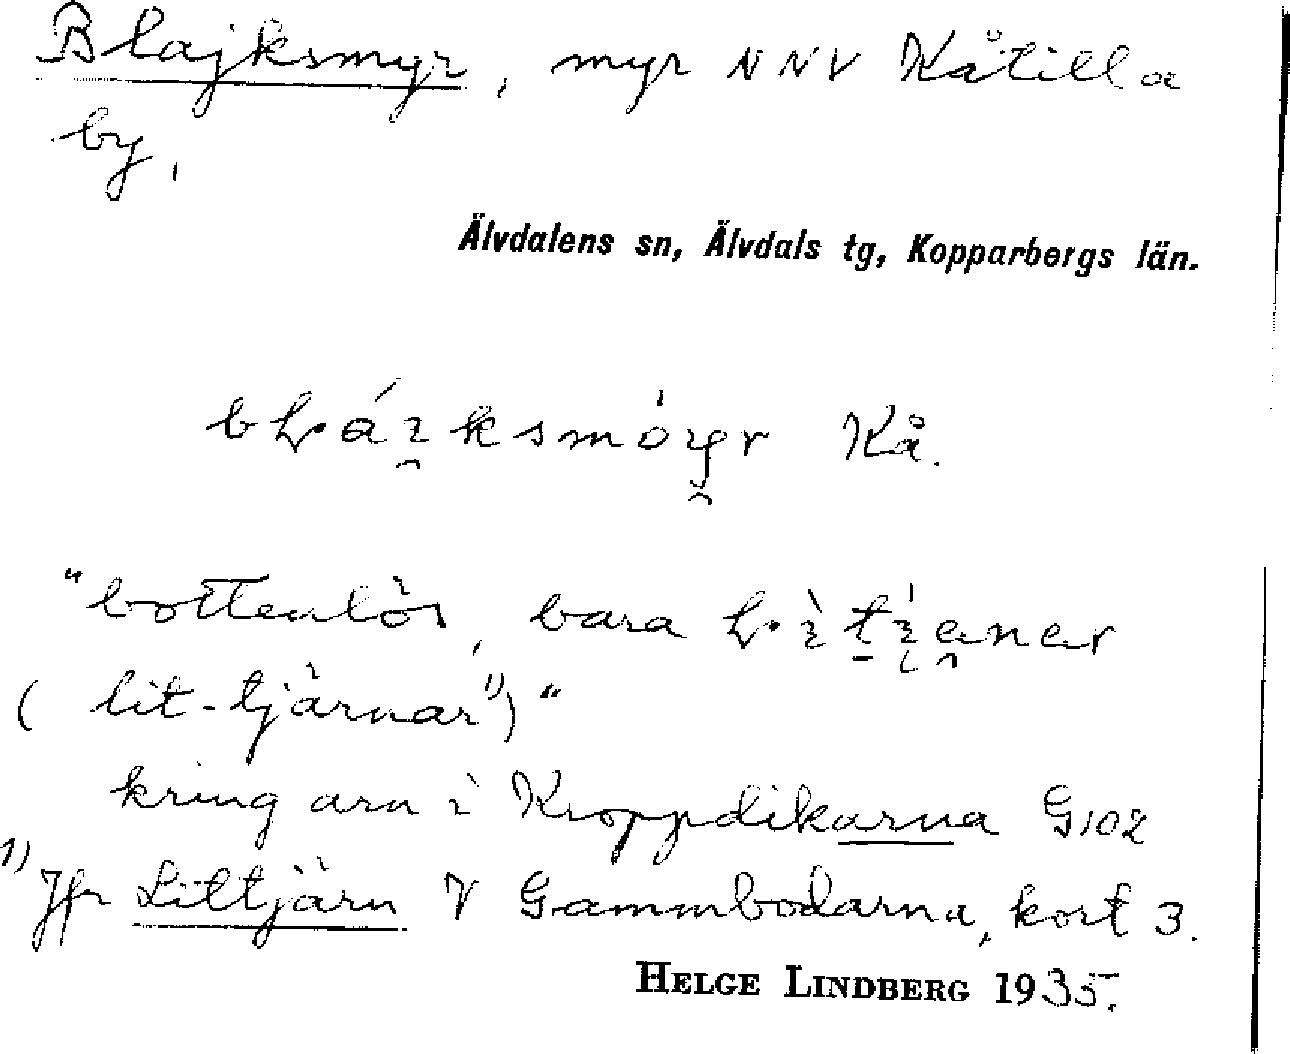 Blajksmyr, myr NNV Kåtilla
by,
Älvdalens sn, Älvdals tg, Kopparbergs län.
Kå.
"bottenlös, bara
( lit-tjärnar¹⁾)"
kring arn i Kroppdikarna G102
¹⁾ Jfr Littjärn V Gammbodarna, kort 3.
HELGE LINDBERG 1935.